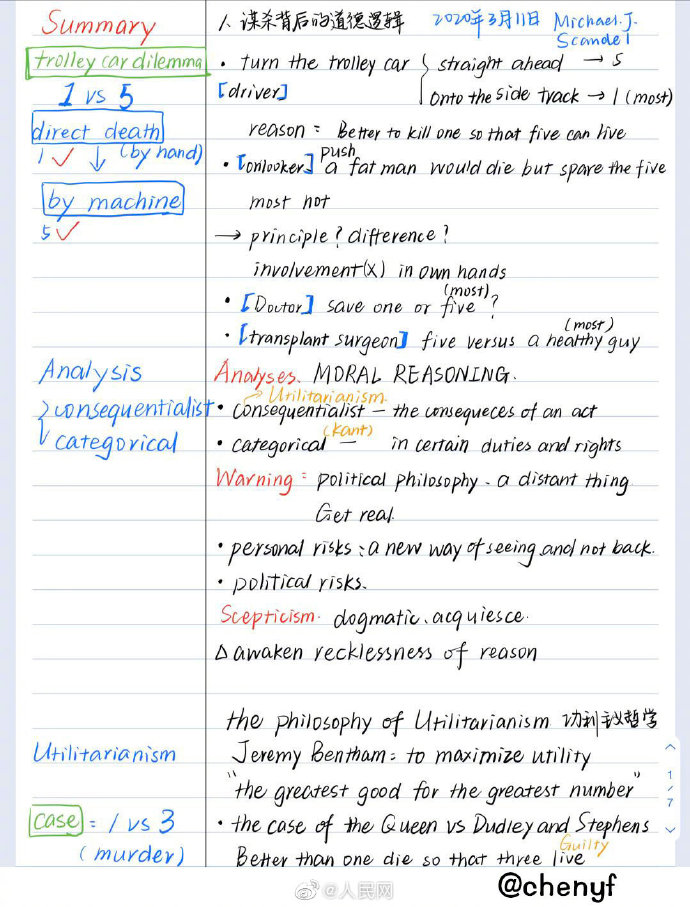 Summary
1. 谋杀背后的道德逻辑 2020年3月11日 Michael.J.
Scandel
trolley car dilemma
• turn the trolley car { straight ahead → 5
1 vs 5
[driver]
onto the side track → 1 (most)
direct death
reason = Better to kill one so that five can live
1 ✓ ↓ (by hand)
push
• [onlooker] a fat man would die but spare the five
by machine
most not
5 ✓
→ principle? difference?
involvement(X) in own hands
(most)
• [Doutor] save one or five?
(most)
• [transplant surgeon] five versus a healthy guy
Analysis
Analyses. MORAL REASONING.
Utilitarianism.
consequentialist
• consequentialist — the consequeces of an act
(Kant)
categorical
• categorical — in certain duties and rights
Warning = political philosophy. a distant thing
Get real.
• personal risks: a new way of seeing and not back.
• political risks.
Scepticism. dogmatic. acquiesce.
△ awaken recklessness of reason
the philosophy of Utilitarianism 功利主义哲学
Utilitarianism
Jeremy Bentham = to maximize utility
"the greatest good for the greatest number"
1/7
case = 1 vs 3
• the case of the Queen vs Dudley and Stephens
Guilty
(murder)
Better than one die so that three live
@人民网
@chenyf